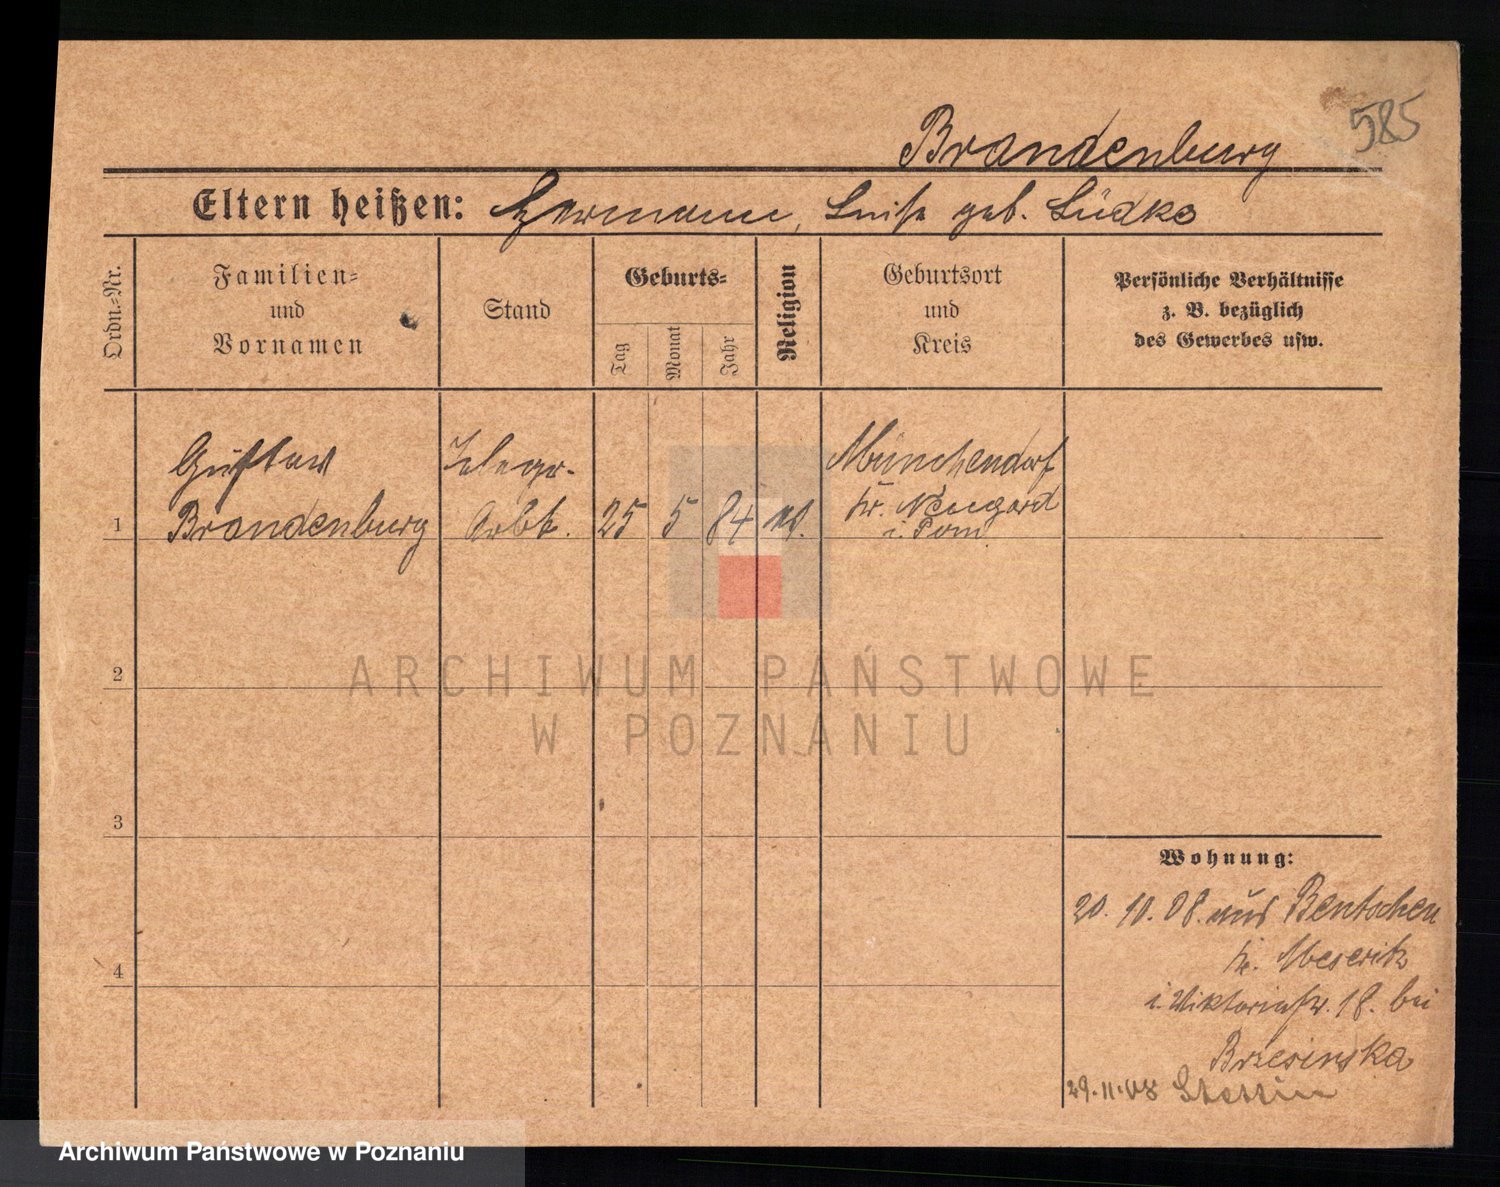 585
Brandenburg
Eltern heißen: Hermann, Luise geb. Lüdke
Ordn.-Nr.
Familien-
und
Vornamen
Stand
Geburts-
Tag
Monat
Jahr
Religion
Geburtsort
und
Kreis
Persönliche Verhältnisse
z. B. bezüglich
des Gewerbes usw.
1
Gustav
Brandenburg
Telegr.
Arbt.
25
5
84
Münchendorf
Kr. Neugard
i. Pom
2
3
4
Wohnung:
20. 10. 08. aus Bentschen
Kr. Meseritz
i. Viktoriastr. 18. bei
Brzesinska
29.11.08 Stettin
ARCHIWUM PAŃSTWOWE
W POZNANIU
Archiwum Państwowe w Poznaniu